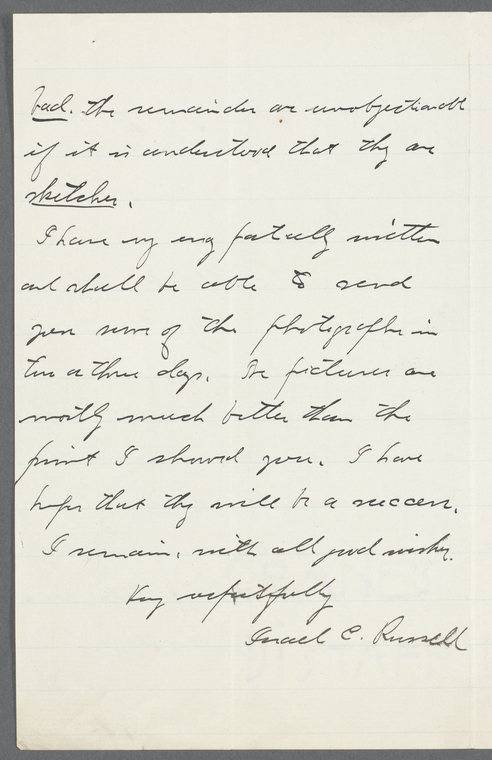 bad. The remainder are unobjectionable
if it is understood that they are
sketches.
I have my mss partially written
and shall be able to send
you some of the photographs in
two or three days. The pictures are
mostly much better than the
print I showed you. I have
hopes that they will be a success.
I remain, with all good wishes,
Very respectfully
Israel C. Russell